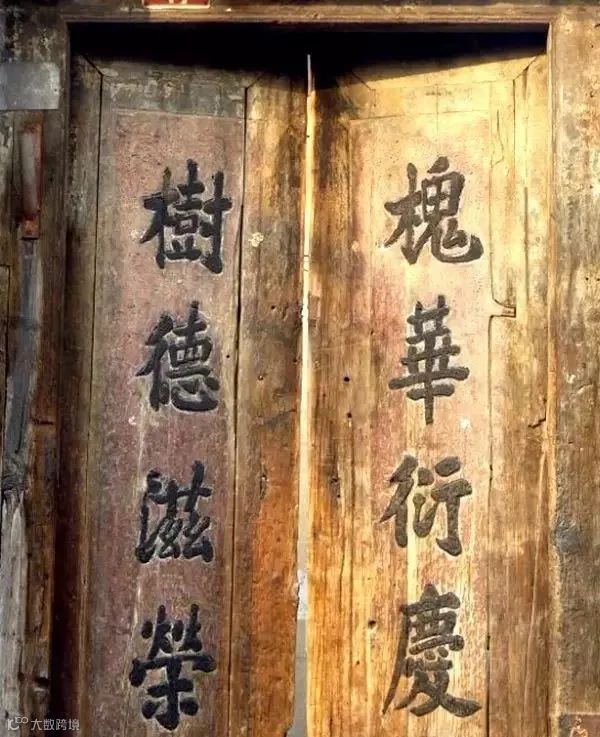 槐華衍慶
樹德滋榮
大数跨境